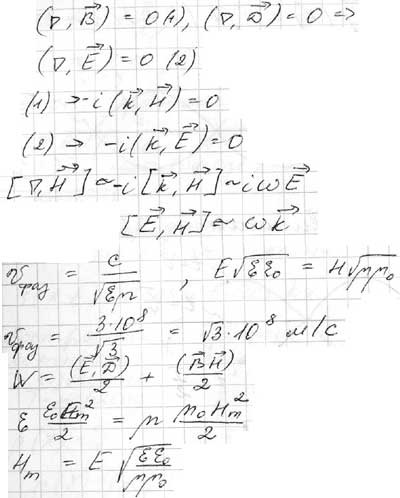 (∇, B⃗) = 0 (1), (∇, D⃗) = 0 =>
(∇, E⃗) = 0 (2)
(1) → -i(k⃗, H⃗) = 0
(2) → -i(k⃗, E⃗) = 0
[∇, H⃗] ~ -i[k⃗, H⃗] ~ iωE⃗
[E⃗, H⃗] ~ ωk⃗
v_фаз = c/√(εμ), E√(εε₀) = H√(μμ₀)
v_фаз = 3·10⁸/√3 = √3·10⁸ м/с
W = (E⃗, D⃗)/2 + (B⃗H⃗)/2
ε ε₀E_m²/2 = μ μ₀H_m²/2
H_m = E √(εε₀/μμ₀)